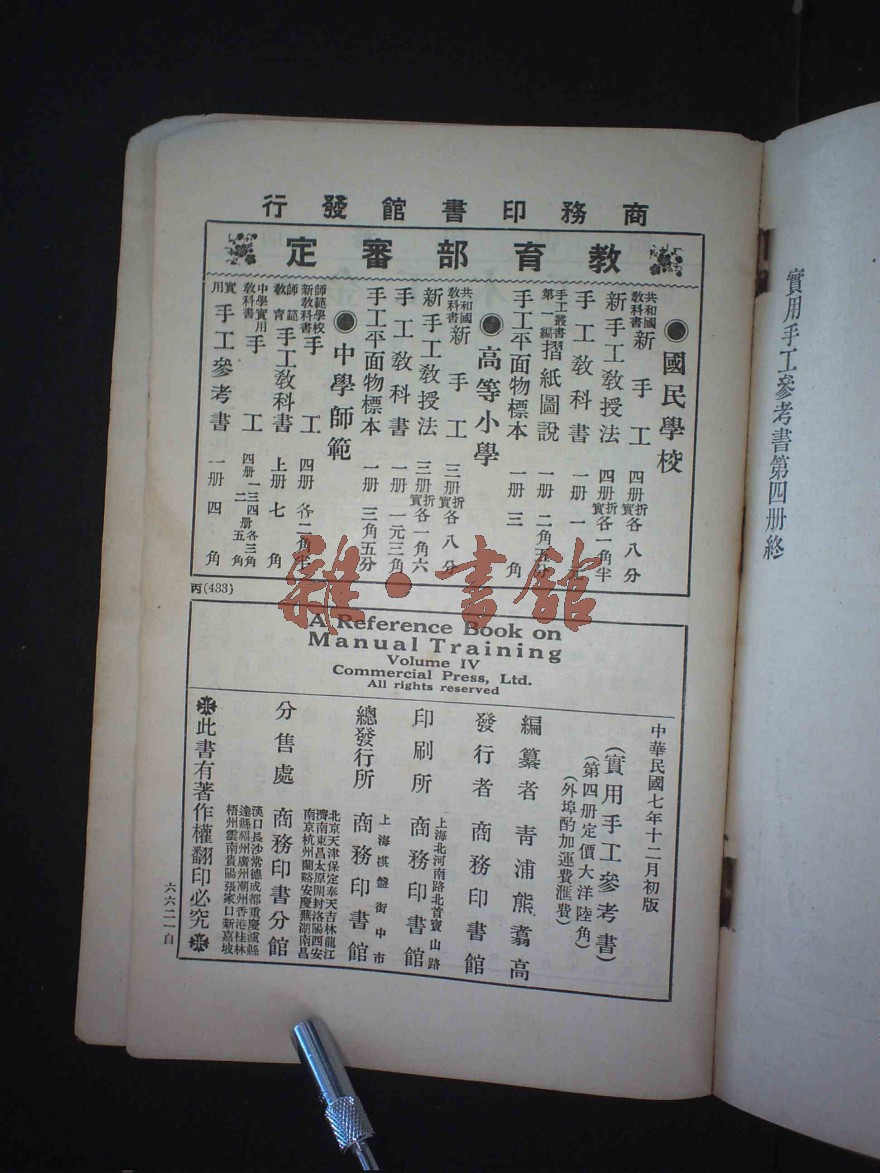 商務印書館發行
教育部審定
●國民學校
共和國教科書新手工 四册 折實各八分
新手工教授法 四册 折實各一角半
手工教科書 一册 一元
手工叢書第一編摺紙圖說 一册 二角五分
手工平面物標本 一册 三角
●高等小學
共和國教科書新手工 三册 折實各八分
新手工教授法 三册 折實各一角六
手工教科書 一册 一元三角
手工平面物標本 一册 三角五分
●中學師範
師範學校新教科書手工 四册 各二角半
師範教育手工教科書 上册 七角
中學實用教科書手工 四册 一三四册各三角 二册五角
實用手工參考書 一册 四角
丙(433)
A Reference Book on
Manual Training
Volume IV
Commercial Press, Ltd.
All rights reserved
中華民國七年十二月初版
(實用手工參考書)
(第四册定價大洋陸角)
(外埠酌加運費滙費)
編纂者 青浦熊翥高
發行者 商務印書館
上海北河南路北首寶山路
印刷所 商務印書館
上海棋盤街中市
總發行所 商務印書館
北京天津保定奉天吉林龍江
濟南東昌太原開封洛陽西安
南京杭州蘭谿安慶蕪湖南昌
分售處 商務印書分館
漢口長沙常德成都重慶瀘縣
達縣福州廣州潮州香港桂林
梧州雲南貴陽張家口新嘉坡
此書有著作權翻印必究
六六二一自
實用手工參考書第四册終
雜·書館